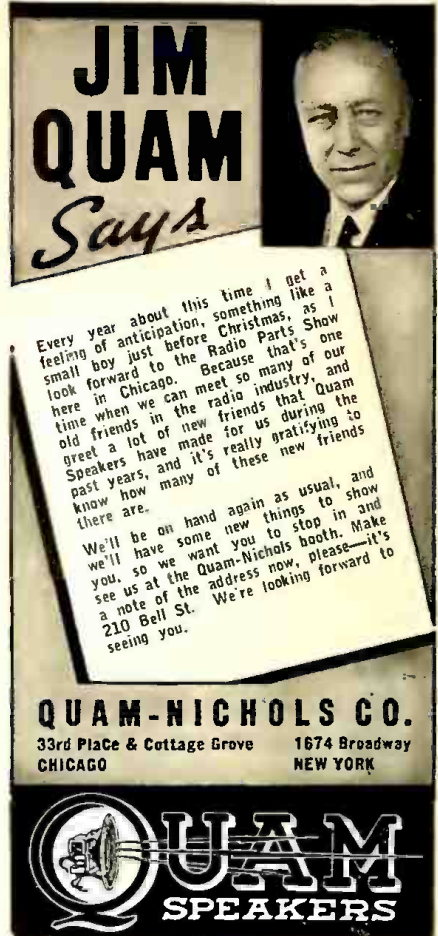 JIM
QUAM
Says
Every year about this time I get a
feeling of anticipation, something like a
small boy just before Christmas, as I
look forward to the Radio Parts Show
here in Chicago. Because that's one
time when we can meet so many of our
old friends in the radio industry, and
greet a lot of new friends that Quam
Speakers have made for us during the
past years, and it's really gratifying to
know how many of these new friends
there are.
We'll be on hand again as usual, and
we'll have some new things to show
you, so we want you to stop in and
see us at the Quam-Nichols booth. Make
a note of the address now, please—it's
210 Bell St. We're looking forward to
seeing you.
QUAM-NICHOLS CO.
33rd Place & Cottage Grove 1674 Broadway
CHICAGO NEW YORK
QUAM
SPEAKERS